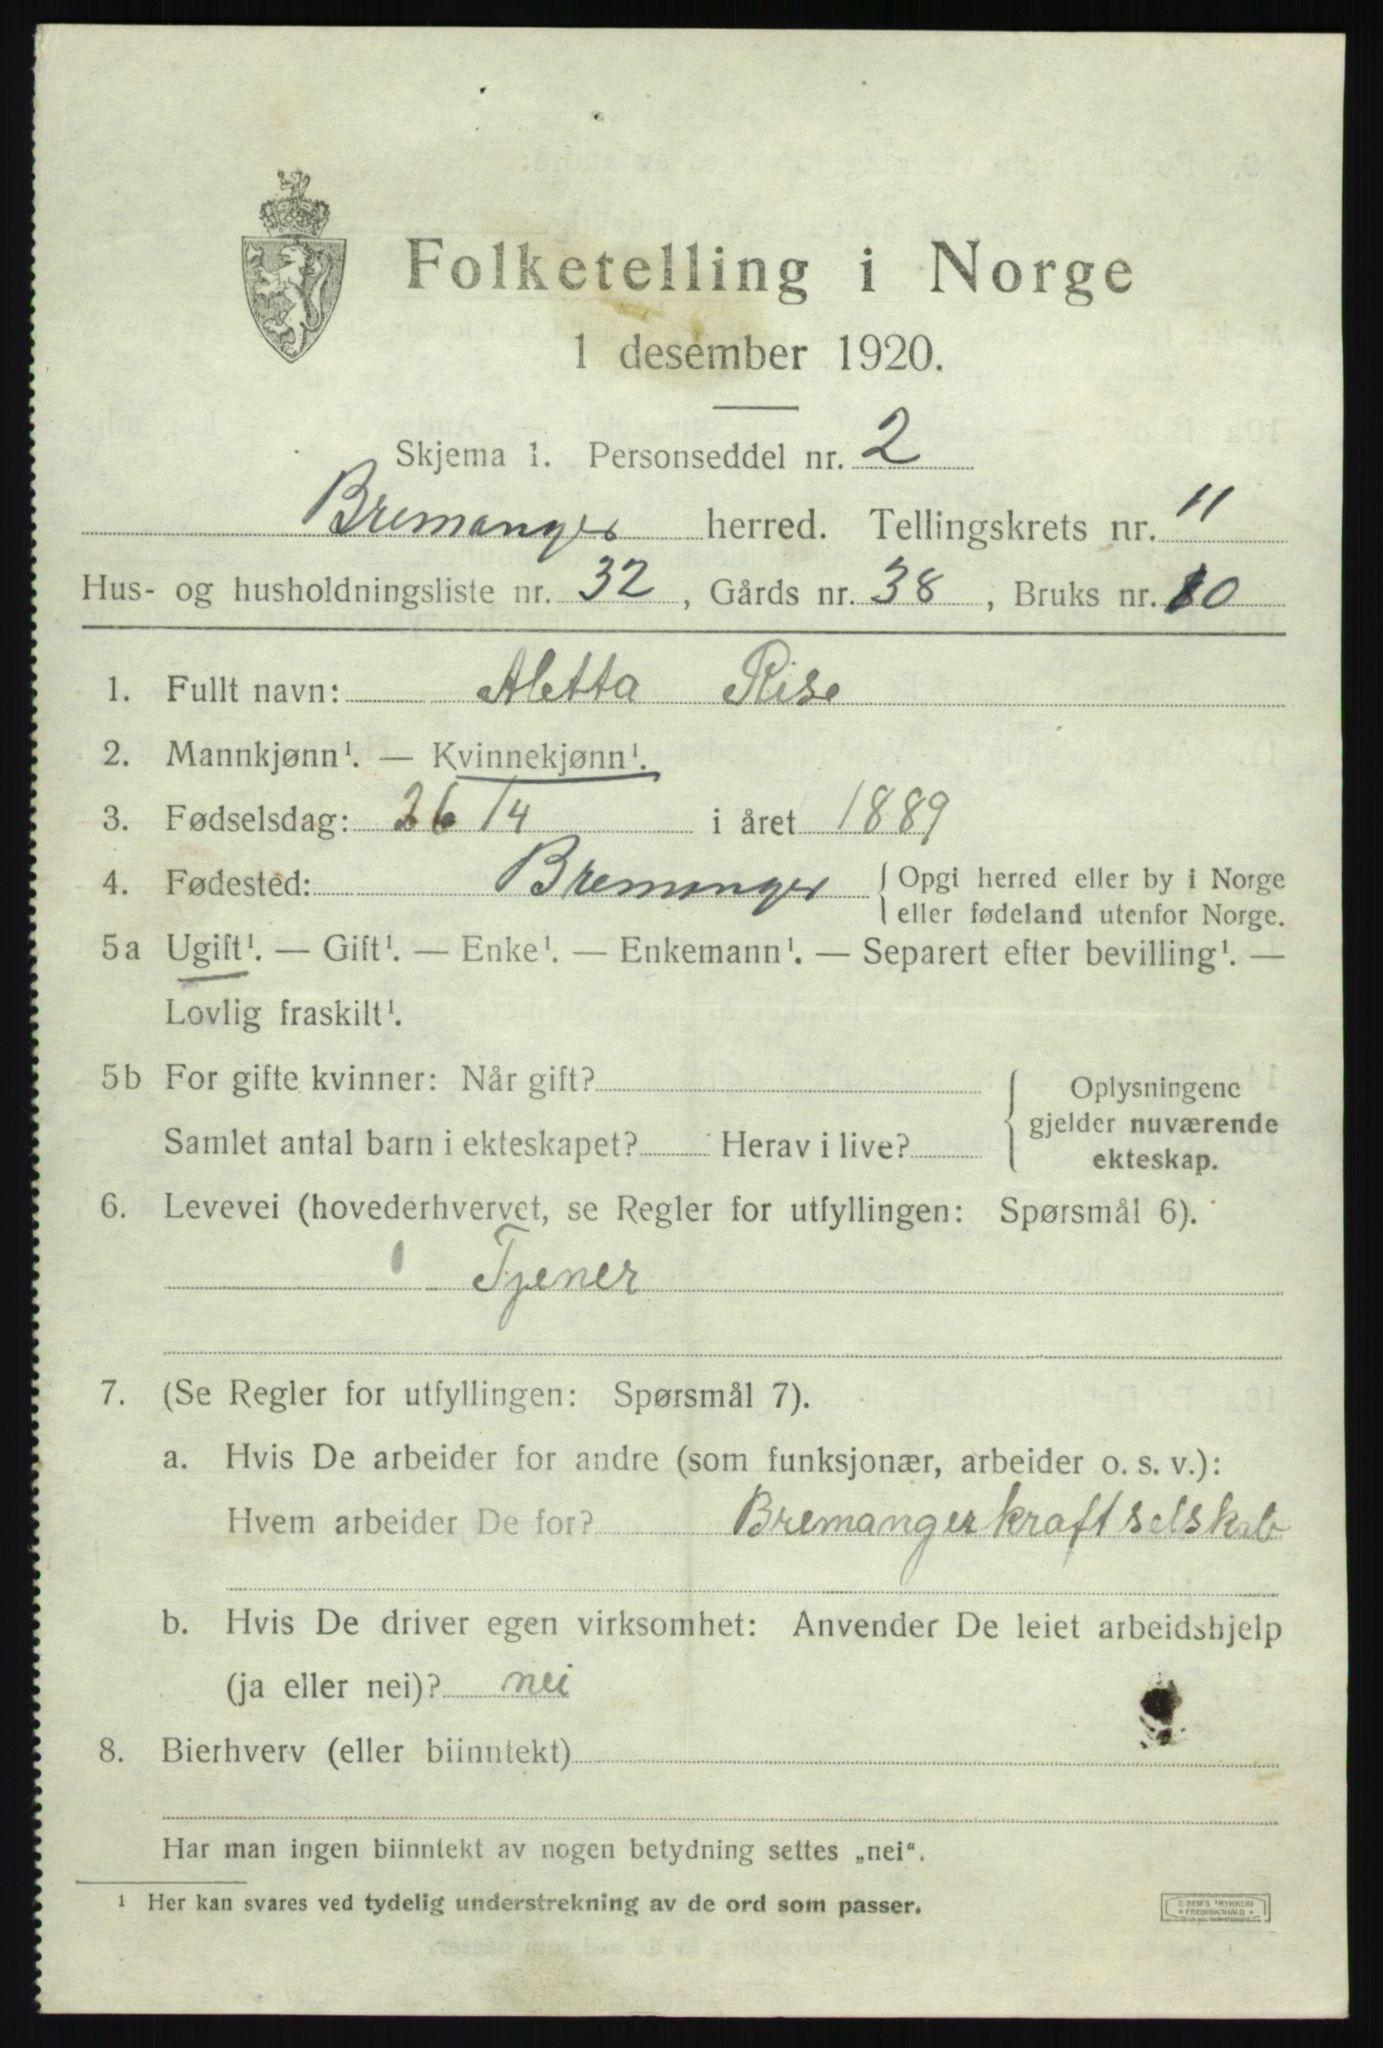 Folketelling i Norge
1 desember 1920.
Skjema 1. Personseddel nr. 2
Bremanger herred. Tellingskrets nr. 11
Hus- og husholdningsliste nr. 32, Gårds nr. 38, Bruks nr. 10
1. Fullt navn: Aletta Rise
2. Mannkjønn¹. — Kvinnekjønn¹.
3. Fødselsdag: 26/4 i året 1889
4. Fødested: Bremanger { Opgi herred eller by i Norge
eller fødeland utenfor Norge.
5a Ugift¹. — Gift¹. — Enke¹. — Enkemann¹. — Separert efter bevilling¹. —
Lovlig fraskilt¹.
5b For gifte kvinner: Når gift?
Samlet antal barn i ekteskapet? Herav i live?
Oplysningene
gjelder nuværende
ekteskap.
6. Levevei (hovederhvervet, se Regler for utfyllingen: Spørsmål 6).
Tjener
7. (Se Regler for utfyllingen: Spørsmål 7).
a. Hvis De arbeider for andre (som funksjonær, arbeider o. s. v.):
Hvem arbeider De for? Bremangerkraftselskab
b. Hvis De driver egen virksomhet: Anvender De leiet arbeidshjelp
(ja eller nei)? nei
8. Bierhverv (eller biinntekt)
Har man ingen biinntekt av nogen betydning settes „nei“.
¹ Her kan svares ved tydelig understrekning av de ord som passer.